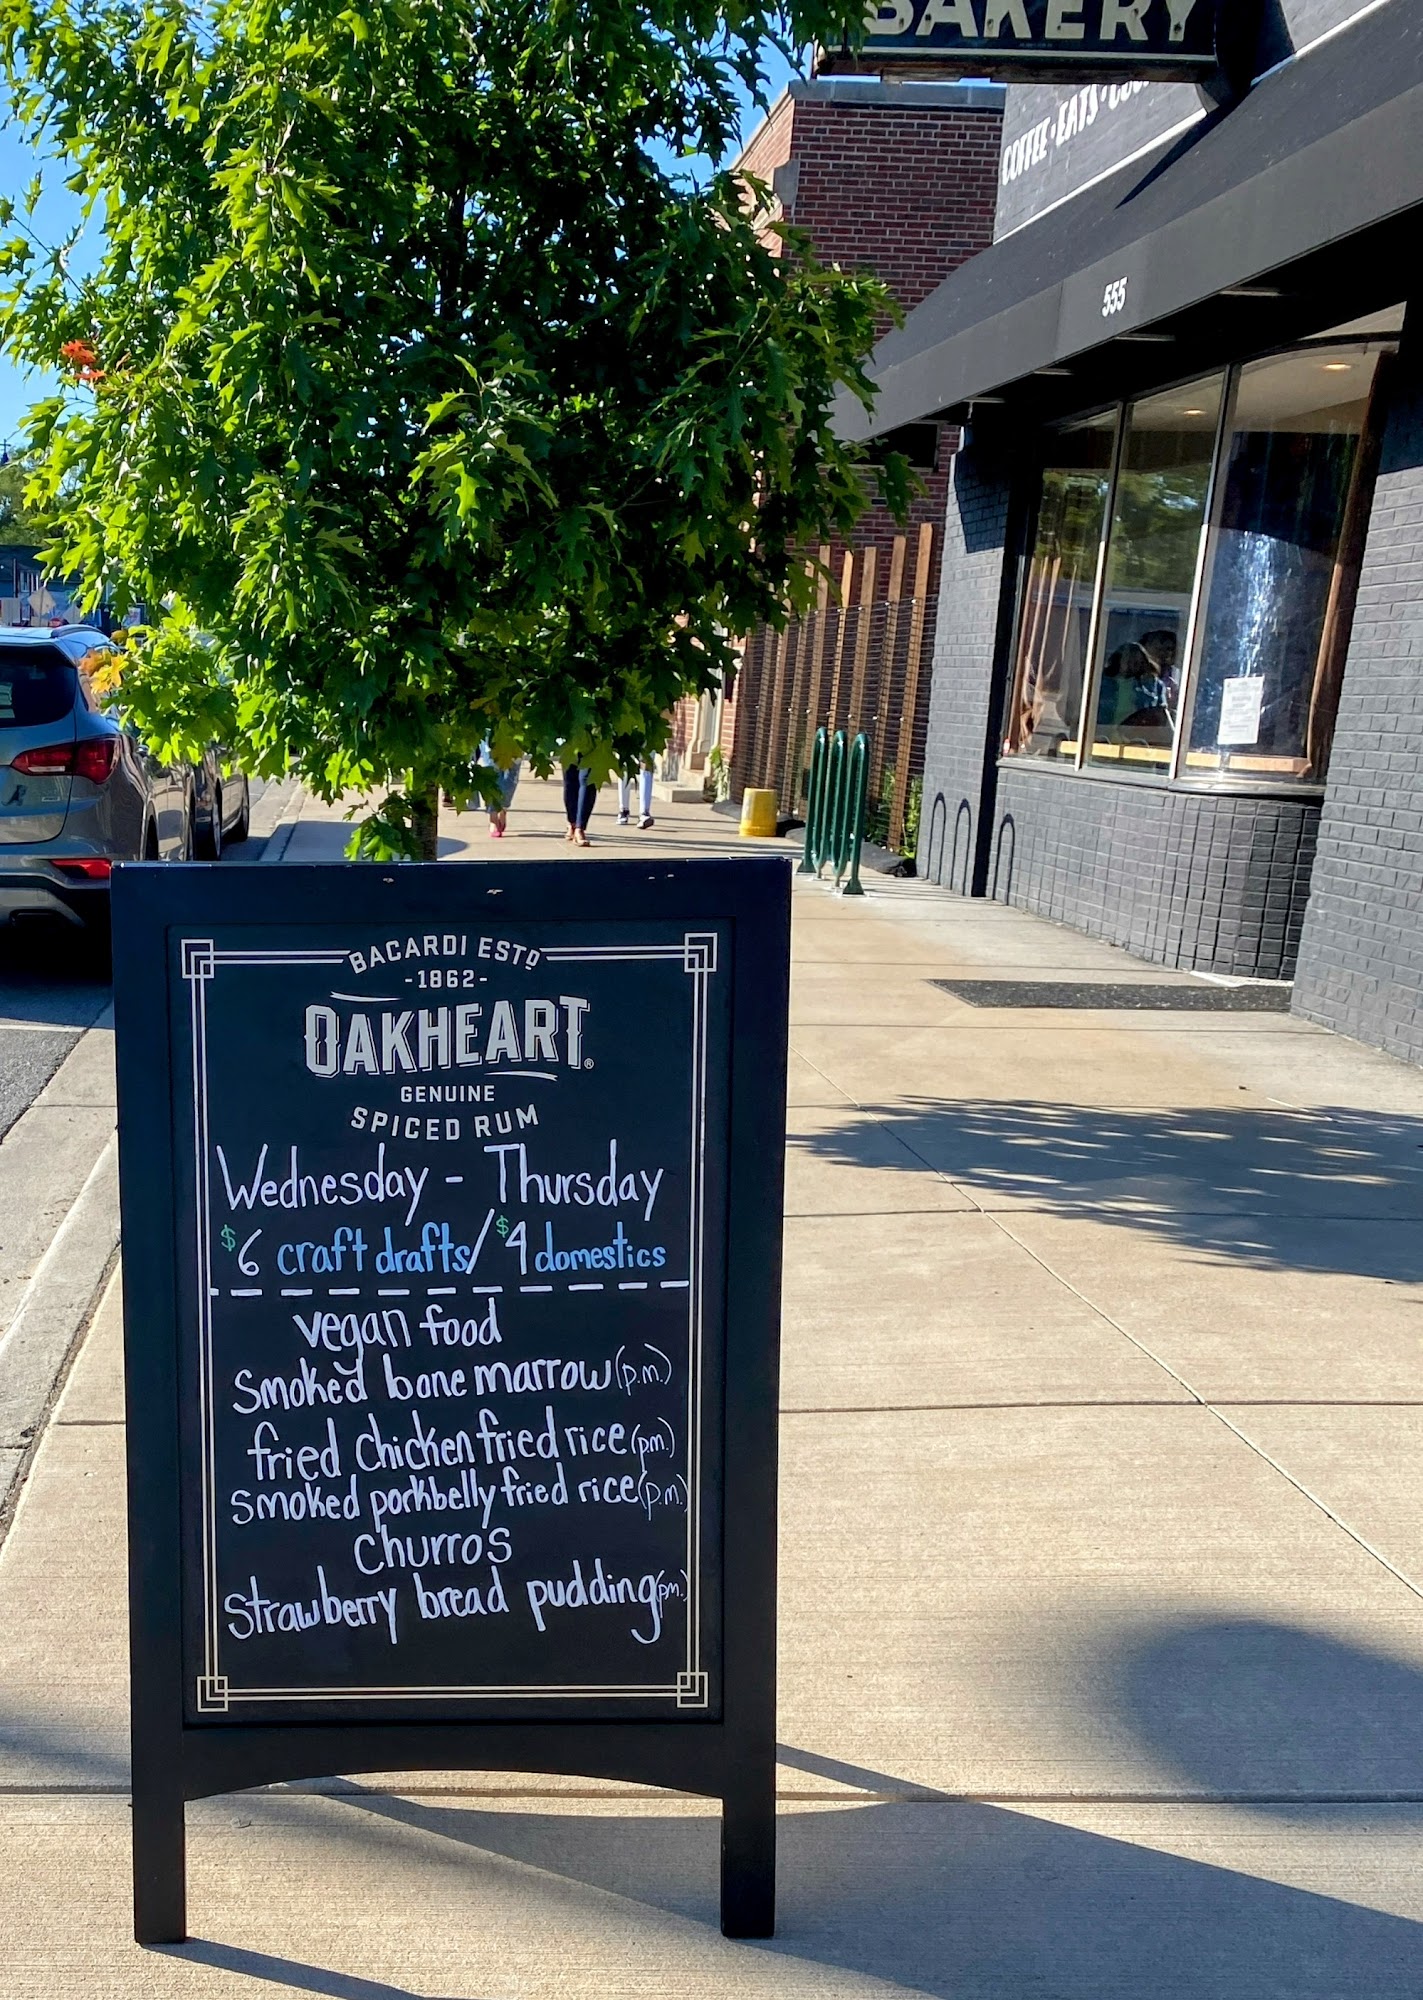 BAKERY
COFFEE · EATS ·
555
BACARDI ESTD
-1862-
OAKHEART®
GENUINE
SPICED RUM
Wednesday - Thursday
$6 craft drafts/$4 domestics
vegan food
Smoked bone marrow (p.m.)
fried Chicken fried rice (p.m.)
smoked porkbelly fried rice (p.m.)
Churros
Strawberry bread pudding (p.m.)